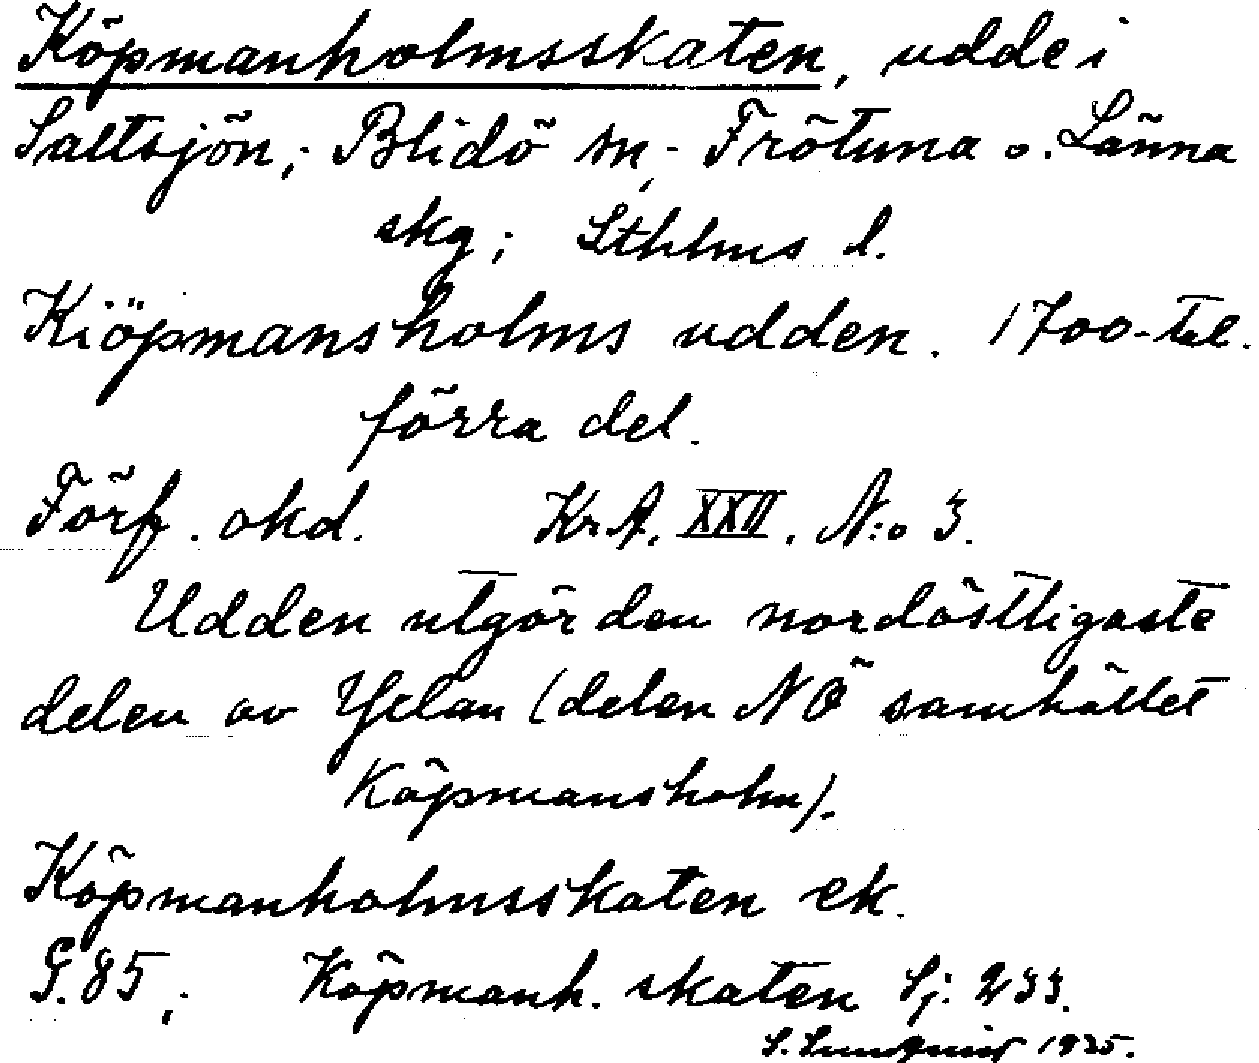 Köpmanholmsskaten, udde i
Saltsjön; Blidö sn, Frötuna o. Länna
skg; Sthlms l.
Kiöpmansholms udden. 1700-tal.
förra del.
Förf. okd. Kr.A. XXII. N:o 3.
Udden utgör den nordöstligaste
delen av Yxlan (delen NÖ samhället
Köpmansholm).
Köpmanholmsskaten ek.
G. 85; Köpmanh. skaten Sj. 233.
S. Lundqvist 1935.